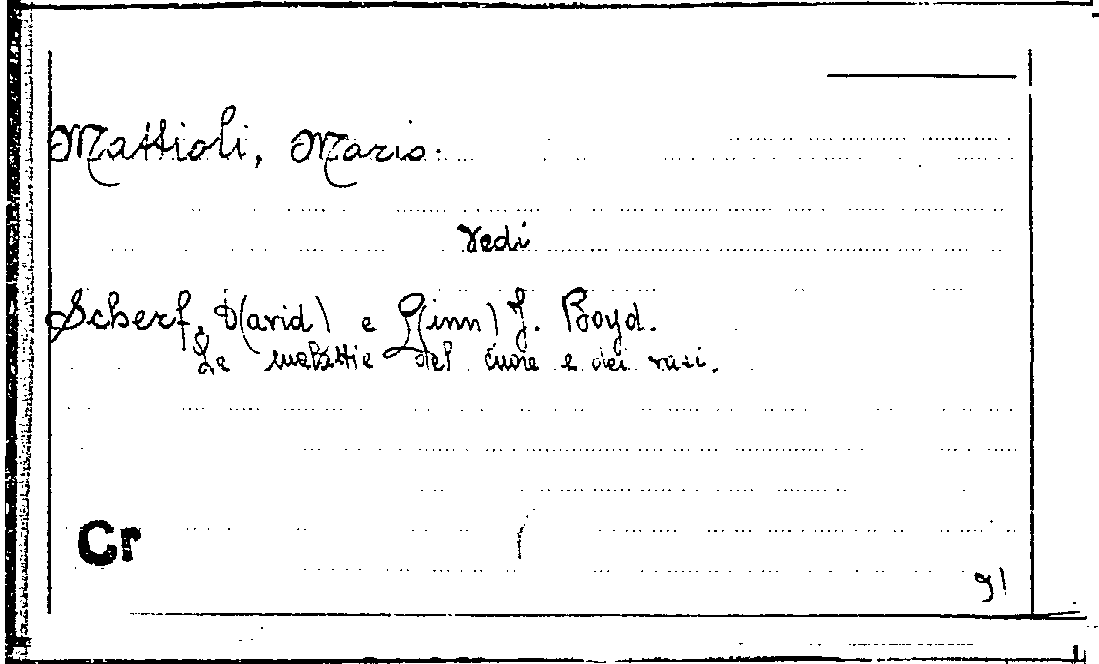 Mattioli, Mario.
Vedi
Scherf, D(avid) e L(inn) J. Boyd.
Le malattie del cuore e dei vasi.
Cr
91